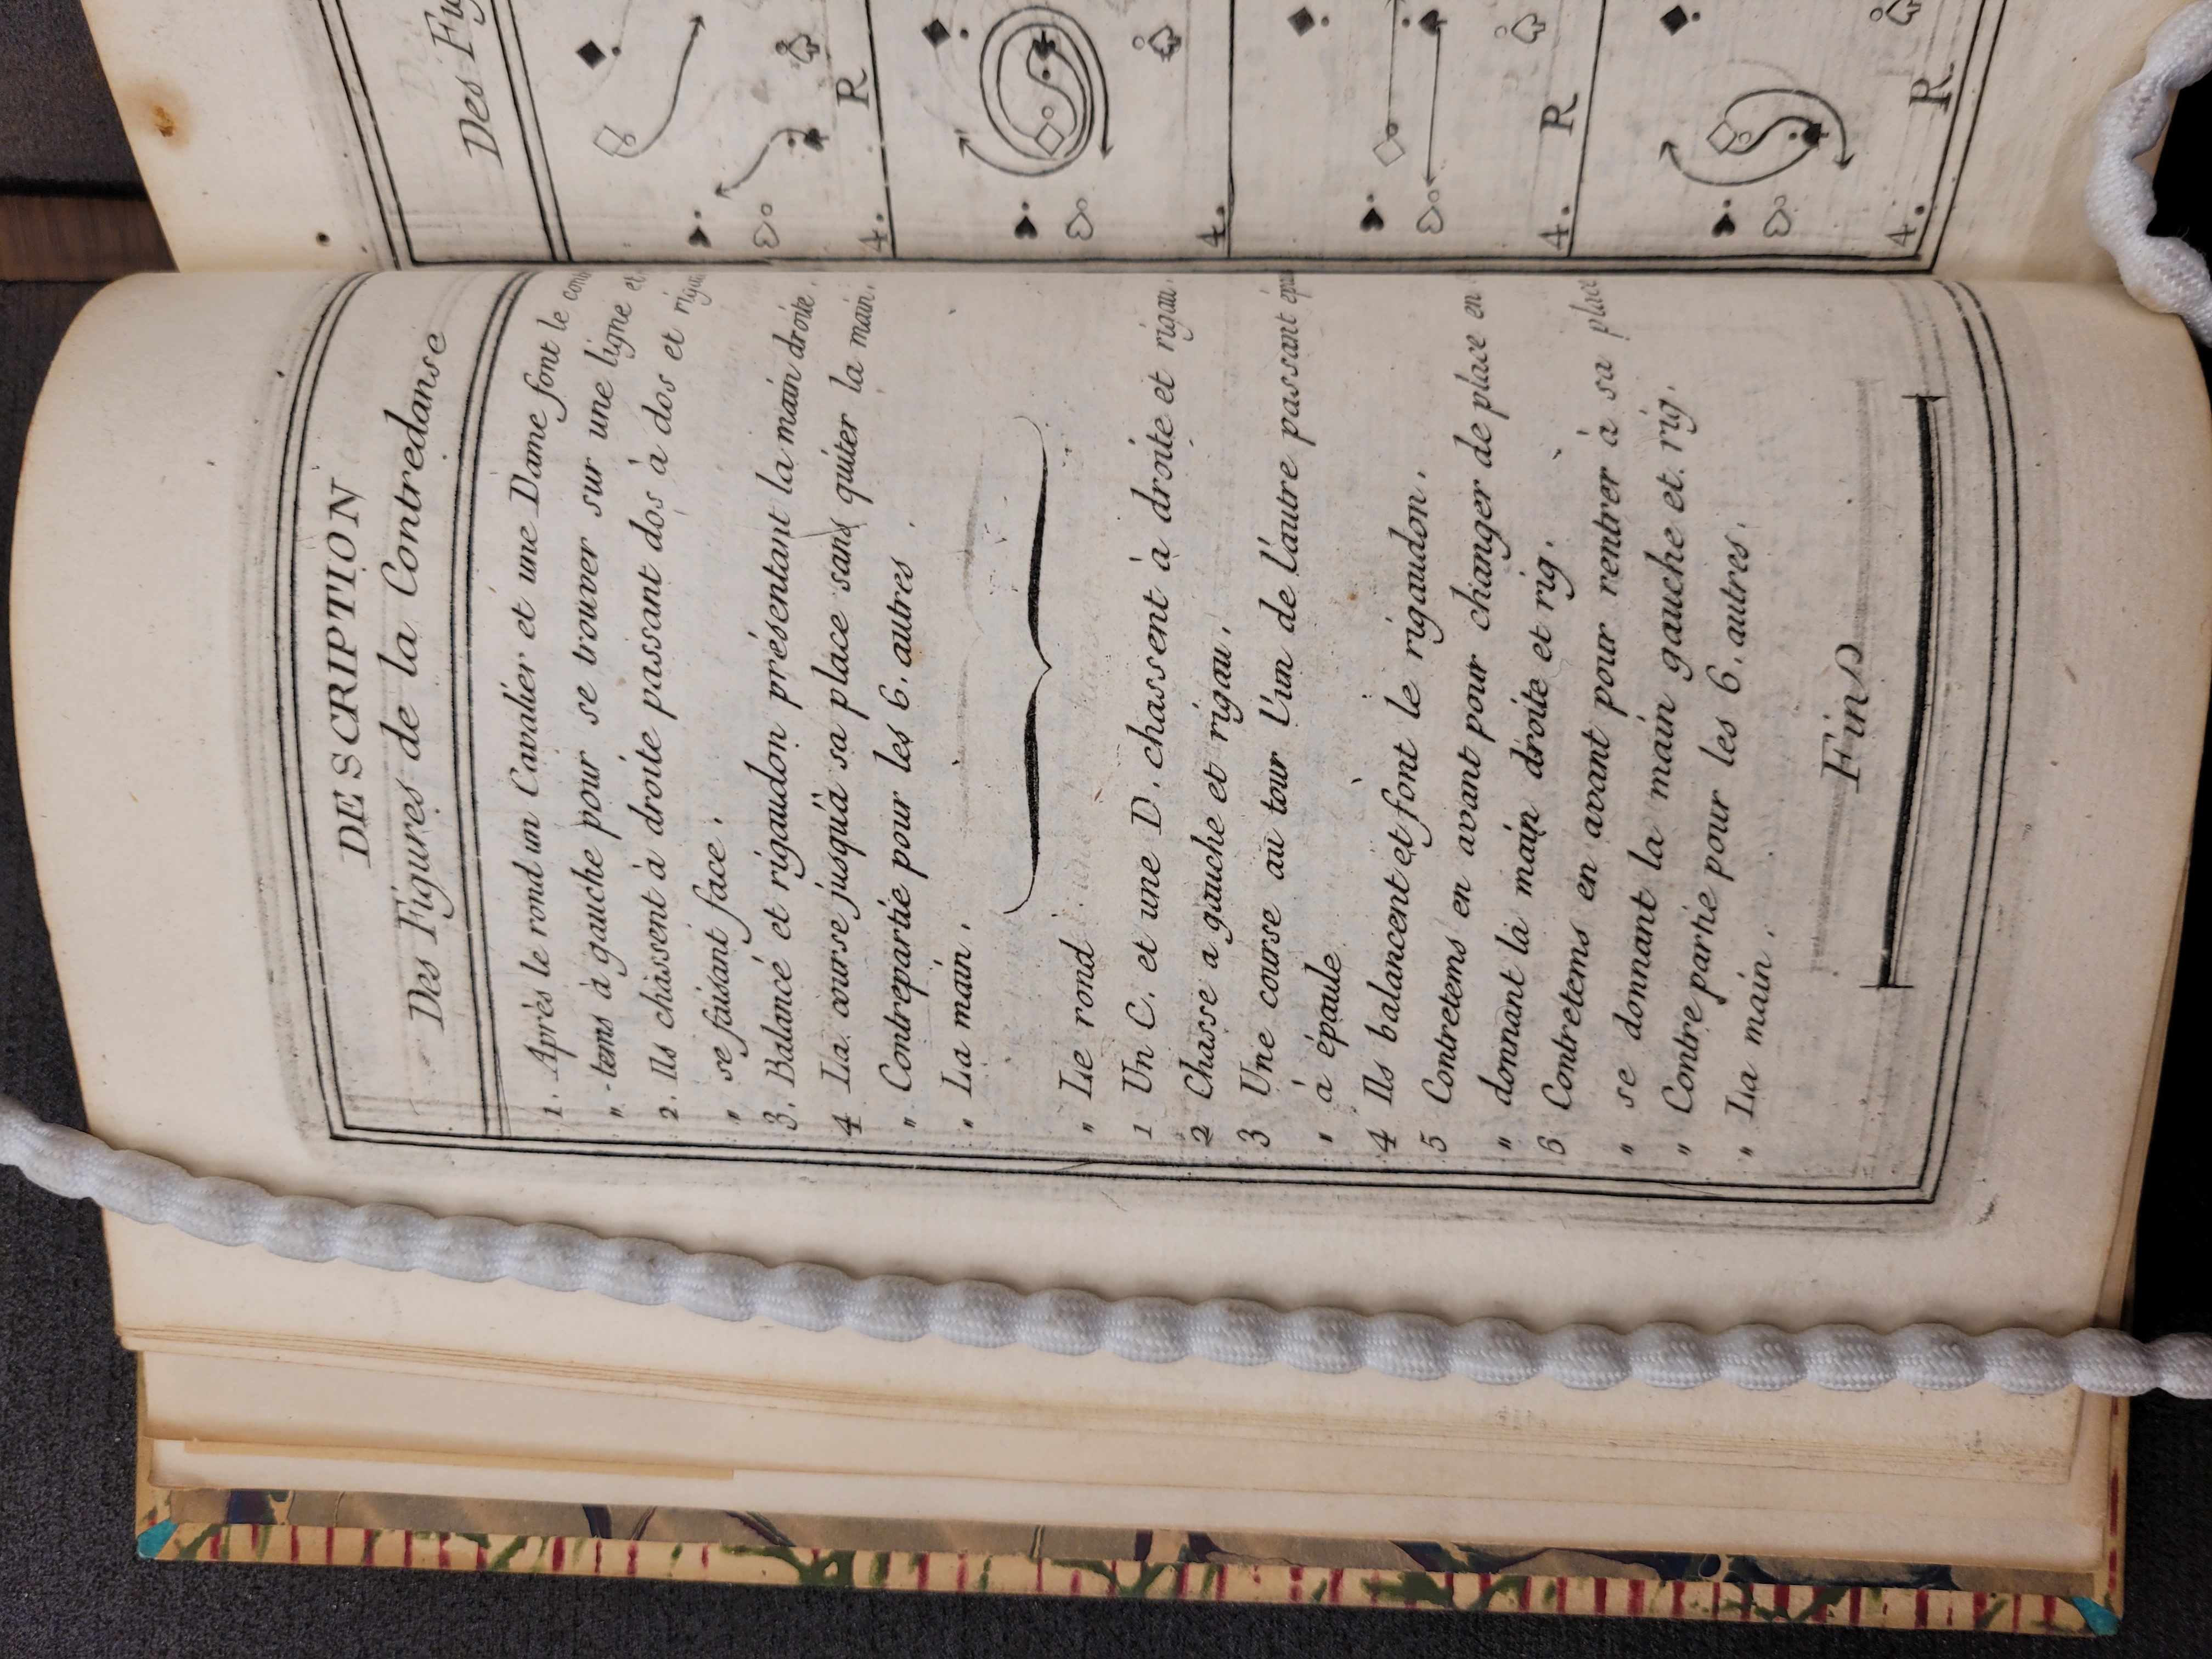 DESCRIPTION
Des Figures de la Contredanse
1. Après le rond un Cavalier et une Dame font le con
" -tems à gauche pour se trouver sur une ligne et
2. Ils chassent à droite passant dos à dos et rigau
" se faisant face.
3. Balancé et rigaudon présentant la main droite.
4 La course jusqu'à sa place sans quiter la main.
" Contrepartie pour les 6. autres.
" La main.
" Le rond
1 Un C. et une D. chassent à droite et rigau.
2 Chasse a gauche et rigau.
3 Une course au tour l'un de l'autre passant épau
" à épaule
4 Ils balancent et font le rigaudon.
5 Contretems en avant pour changer de place en
" donnant la main droite et rig.
6 Contretems en avant pour rentrer à sa place
" se donnant la main gauche et rig.
" Contre partie pour les 6. autres.
" La main.
Fin
Des Fig
4. R
4.
4. R
4. R